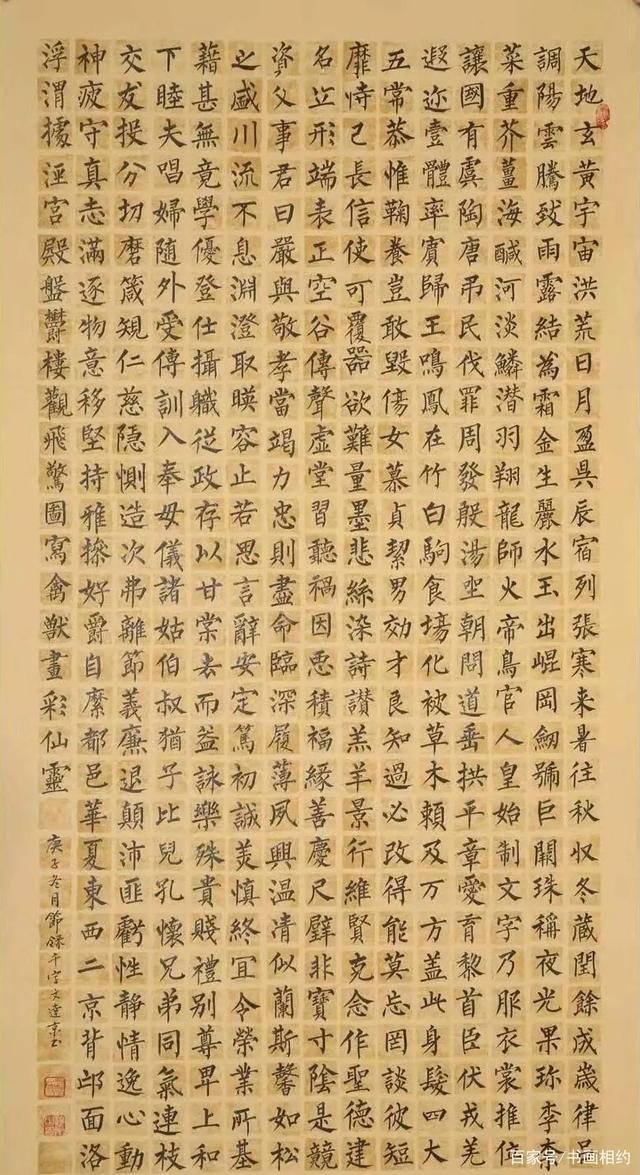 天地玄黃宇宙洪荒日月盈昃辰宿列張寒来暑往秋収冬蔵閏餘成歳律吕
調陽雲騰致雨露結為霜金生麗水玉出崐岡劒號巨闕珠稱夜光果珎李柰
菜重芥薑海醎河淡鱗潛羽翔龍師火帝鳥官人皇始制文字乃服衣裳推位
讓國有虞陶唐吊民伐罪周發殷湯坐朝問道垂拱平章愛育黎首臣伏戎羌
遐迩壹體率賓歸王鳴鳳在竹白駒食場化被草木頼及万方盖此身髮四大
五常恭惟鞠養豈敢毀傷女慕貞絜男効才良知過必改得能莫忘罔談彼短
靡恃己長信使可覆器欲難量墨悲絲染詩讃羔羊景行維賢克念作聖德建
名立形端表正空谷傳聲虛堂習聽禍因悪積福緣善慶尺璧非寶寸陰是競
資父事君曰嚴與敬孝當竭力忠則盡命臨深履薄夙興温凊似蘭斯馨如松
之盛川流不息淵澄取暎容止若思言辭安定篤初誠美慎終宜令榮業所基
藉甚無竟學優登仕攝職從政存以甘棠去而益詠樂殊貴賤禮別尊卑上和
下睦夫唱婦隨外受傅訓入奉母儀諸姑伯叔猶子比兒孔懷兄弟同氣連枝
交友投分切磨箴規仁慈隱惻造次弗離節義廉退顛沛匪虧性靜情逸心動
神疲守真志滿逐物意移堅持雅操好爵自縻都邑華夏東西二京背邙面洛
浮渭據涇宮殿盤鬱樓觀飛驚圖寫禽獸畫彩仙靈
庚子冬月節録千字文達京书
百家号/书画相约